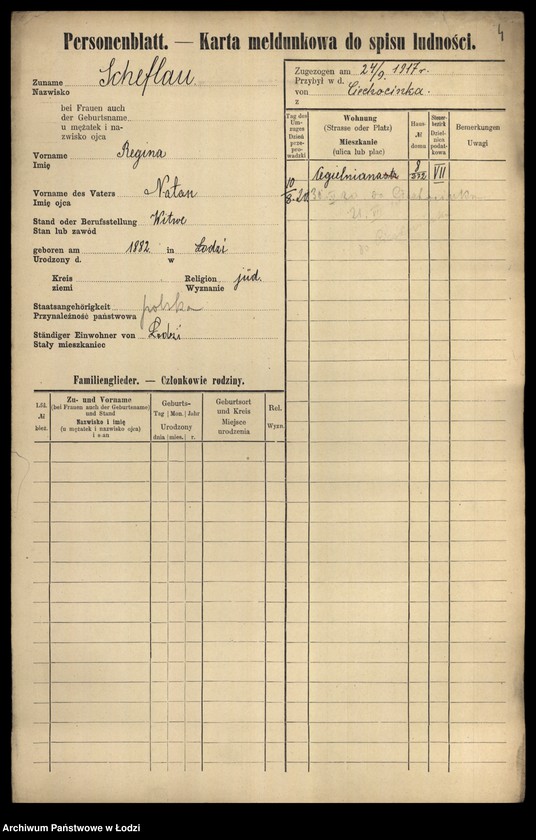 4
Personenblatt. — Karta meldunkowa do spisu ludności.
Zuname Scheflau
Nazwisko
bei Frauen auch
der Geburtsname
u mężatek i na-
zwisko ojca
Vorname Regina
Imię
Vorname des Vaters Natan
Imię ojca
Stand oder Berufsstellung Witwe
Stan lub zawód
geboren am 1882. in Łodzi
Urodzony d. w
Kreis Religion jüd.
ziemi Wyznanie
Staatsangehörigkeit polska
Przynależność państwowa
Ständiger Einwohner von Łodzi
Stały mieszkaniec
Zugezogen am 24/9. 1917 r.
Przybył w d.
von Ciechocinka.
z
Tag des Um-zuges Dzień prze-pro-wadzki
Wohnung
(Strasse oder Platz)
Mieszkanie
(ulica lub plac)
Haus-
№
domu
Steuer-bezirk Dziel-nica podat-kowa
Bemerkungen
Uwagi
Cegielniana VII
10/8. 20
Familienglieder. — Członkowie rodziny.
Lfd.
№
bież.
Zu- und Vorname
(bei Frauen auch der Geburtsname)
und Stand
Nazwisko i imię
(u mężatek i nazwisko ojca)
i stan
Geburts-
Tag Mon. Jahr
Urodzony
dnia mies. r.
Geburtsort
und Kreis
Miejsce
urodzenia
Rel.
Wyzn.
Archiwum Państwowe w Łodzi